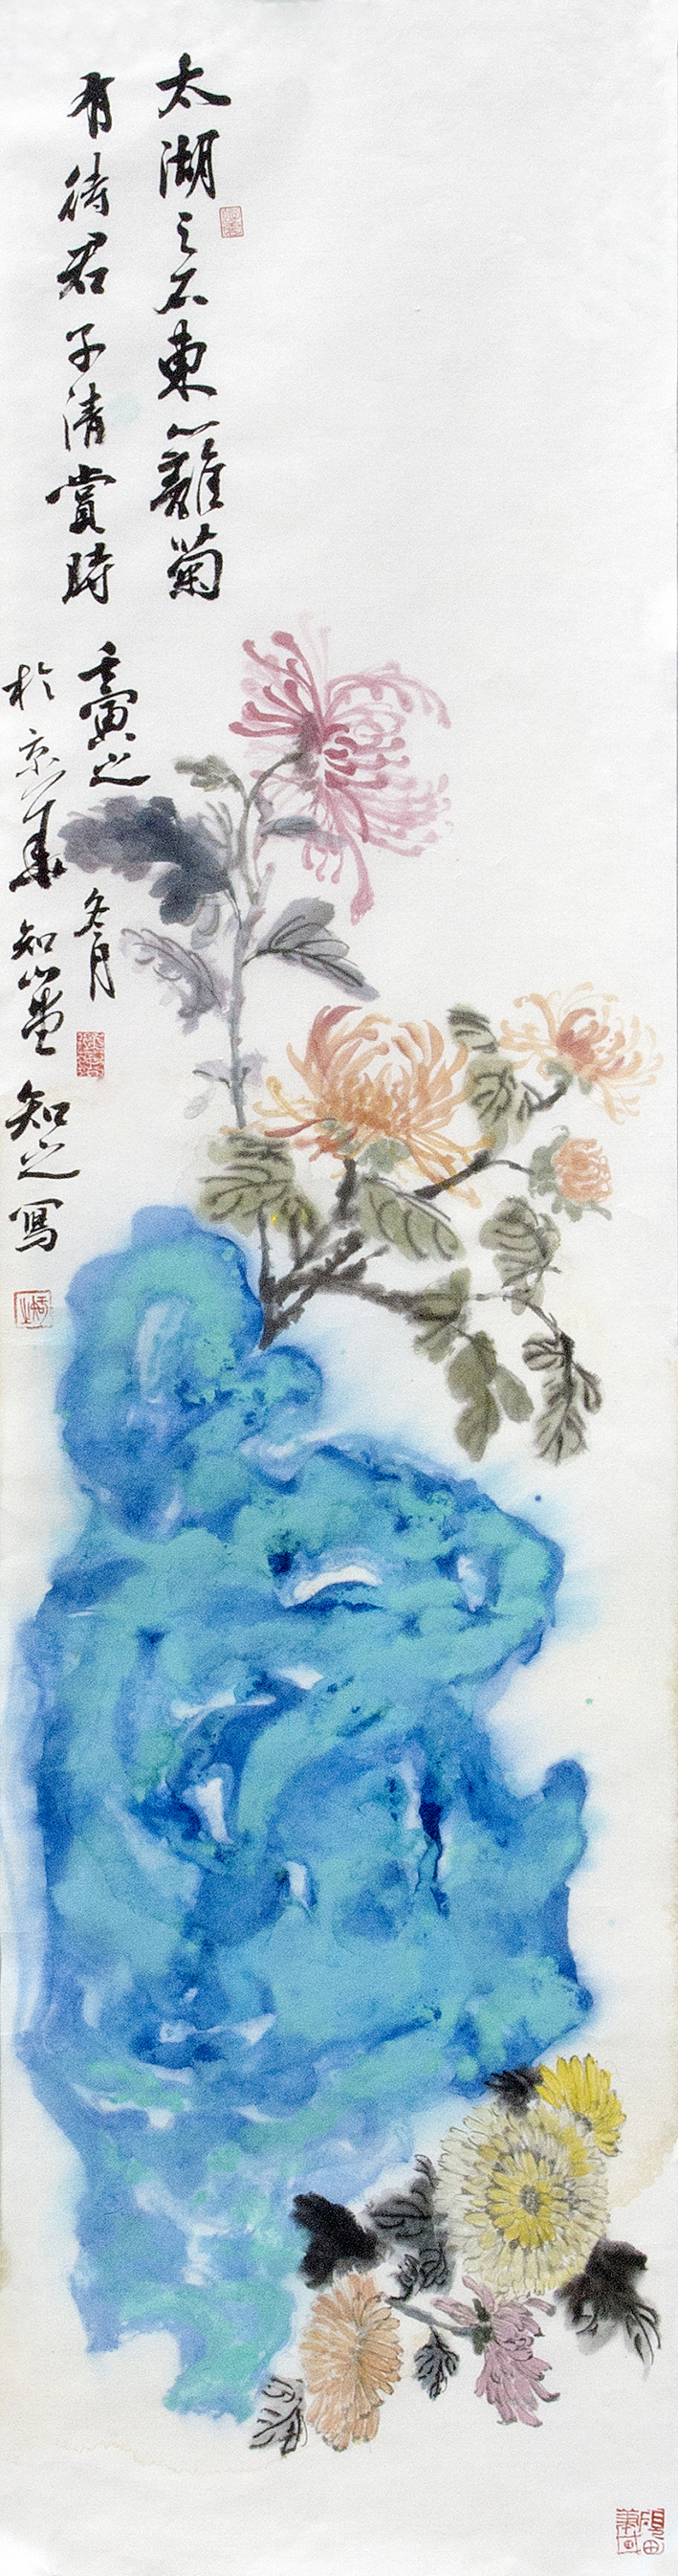 太湖之石東籬菊
有待君子清賞時
壬寅之冬月
於京華知當堂知之寫